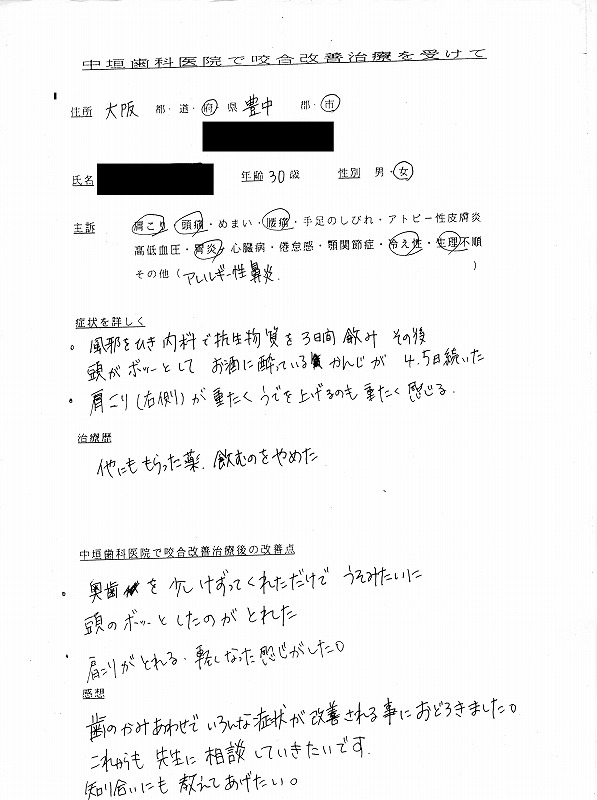 中垣歯科医院で咬合改善治療を受けて
住所 大阪 都・道・府・県 豊中 郡・市
氏名 年齢 30歳 性別 男・女
主訴 肩こり・頭痛・めまい・腰痛・手足のしびれ・アトピー性皮膚炎
高低血圧・胃炎・心臓病・倦怠感・顎関節症・冷え性・生理不順
その他(アレルギー性鼻炎. )
症状を詳しく
風邪をひき内科で抗生物質を3日間飲み その後
頭がボッーとして お酒に酔っている かんじが 4.5日続いた
肩こり(右側)が重たく うでを上げるのも重たく感じる.
治療歴
他にももらった薬.飲むのをやめた
中垣歯科医院で咬合改善治療後の改善点
奥歯を少しけずってくれただけで うそみたいに
頭のボッーとしたのがとれた
肩こりがとれる・軽くなった感じがした。
感想
歯のかみあわせで いろんな症状が改善される事におどろきました。
これからも 先生に相談していきたいです.
知り合いにも教えてあげたい。